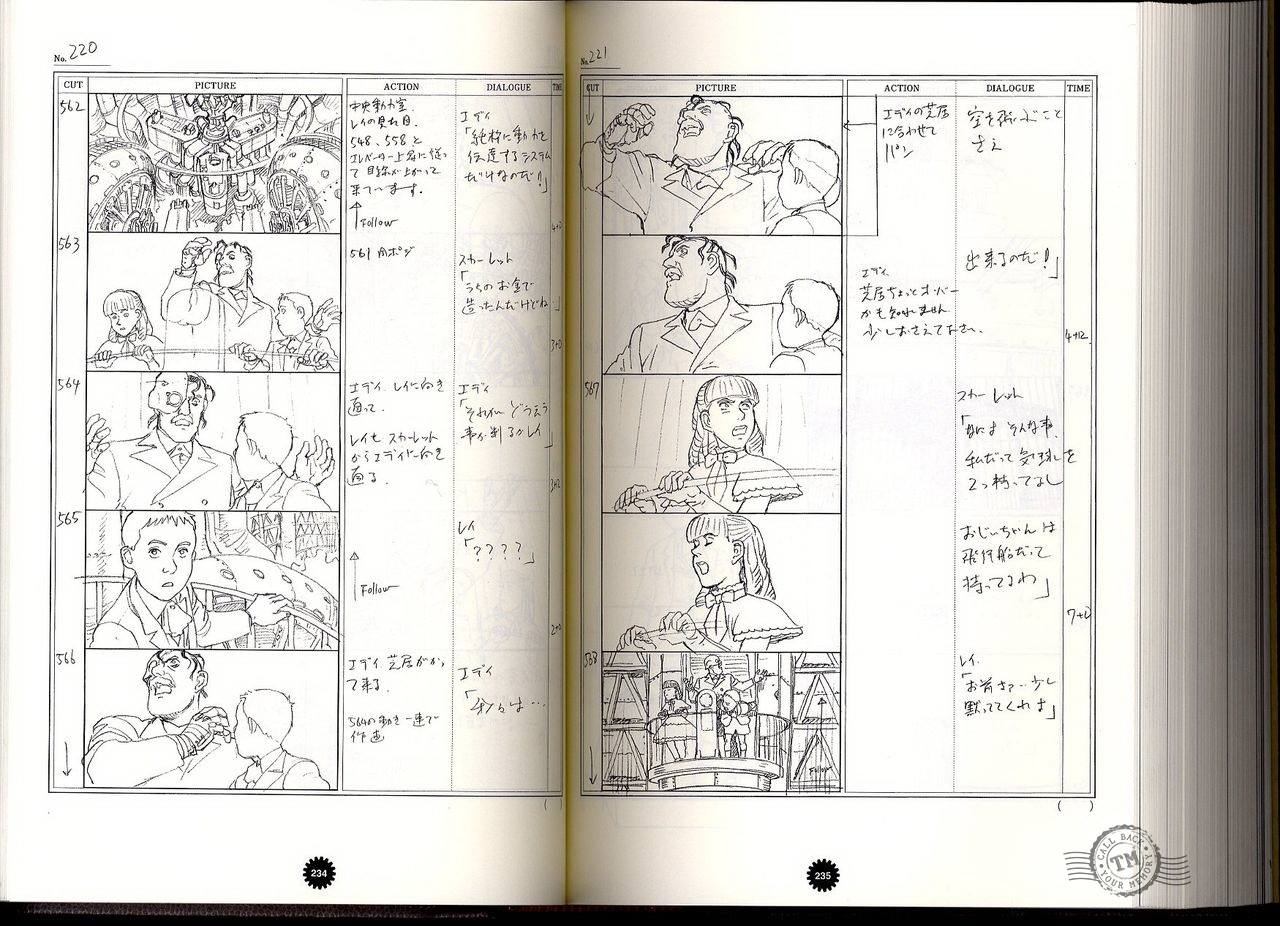 No. 220
CUT PICTURE ACTION DIALOGUE TIME
562
中央動力室
レイの見た目
548、558と
エレベーター上昇に従っ
て目線が上がって
来ています。
Follow
エディ
「純粋に動力を
伝達するシステム
だけなのだ!」
4+0
563
561同ポジ
スカーレット
「うちのお金で
造ったんだけどね」
3+0
564
エディ レイに向き
直って、
レイも スカーレット
からエディに向き
直る
エディ
「それが どういう
事か判るか レイ」
565
Follow
レイ
「????」
2+0
566
エディ 芝居がかっ
て来る
564の動き一連で
作画
エディ
234
No. 221
CUT PICTURE ACTION DIALOGUE TIME
エディの芝居
に合わせて
パン
空を飛ぶこと
さえ
エディ
芝居ちょっとオーバー
かも知れません
少しおさえて下さい。
出来るのだ!」
4+12
567
スカーレット
「なによ そんな事、
私だって気球を
2つ持ってるし
おじいちゃんは
飛行船だって
持ってるわ」
7+0
568
Follow
レイ
「お前さァ…少し
黙っててくれよ」
235
CALL BACK
TM
YOUR MEMORY